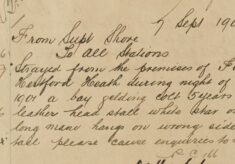 7 Sept 190
From Supt Shore
To All Stations
Strayed from the premises of F
Hertford Heath during night of
1901 a bay gelding colt 5 years
leather head stall white star
long mane hangs on wrong side
tail please cause enquiries to